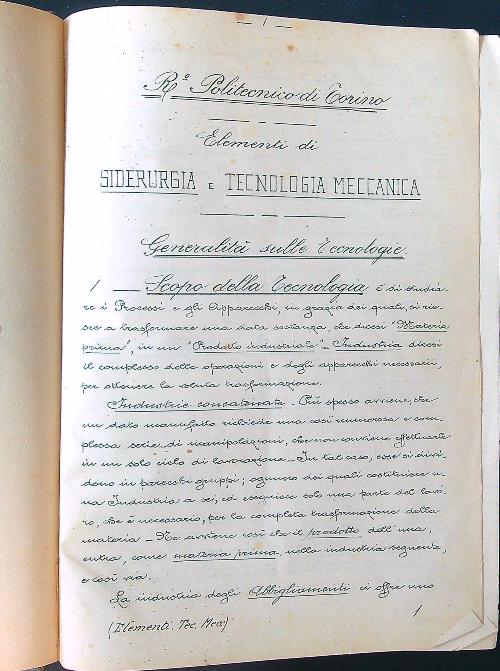 — 1 —
Rº Politecnico di Torino
Elementi di
SIDERURGIA e TECNOLOGIA MECCANICA
Generalità sulle Tecnologie.
1 — Scopo della Tecnologia è di studia-
re i Processi e gli Apparecchi, in grazia dei quali, si rie-
sce a trasformare una data sostanza, che dicesi "Materia
prima", in un "Prodotto industriale" - Industria dicesi
il complesso delle operazioni e degli apparecchi necessarii,
per ottenere la voluta trasformazione.
Industrie concatenate. Più spesso avviene, che
un dato manufatto richiede una così numerosa e com-
plessa serie di manipolazioni, che non conviene effettuarle
in un solo ciclo di lavorazione - In tal caso, esse si divi-
dono in parecchi gruppi; ognuno dei quali costituisce u-
na Industria a sé, ed eseguisce solo una parte del lavo-
ro, che è necessario, per la completa trasformazione della
materia - Ne avviene così che il prodotto dell'una,
entra, come materia prima, nella industria seguente,
e così via.
La industria degli Abbigliamenti ci offre uno
(Elementi. Tec. Mec.)
1